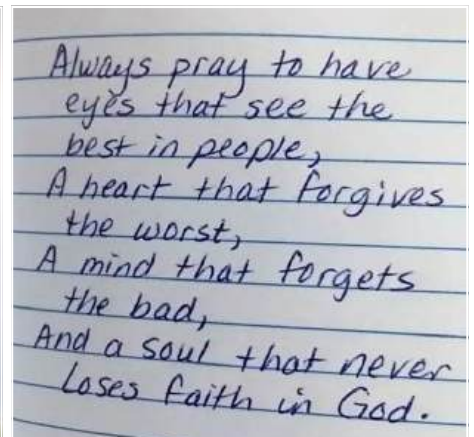 Always pray to have
eyes that see the
best in people,
A heart that forgives
the worst,
A mind that forgets
the bad,
And a soul that never
Loses faith in God.